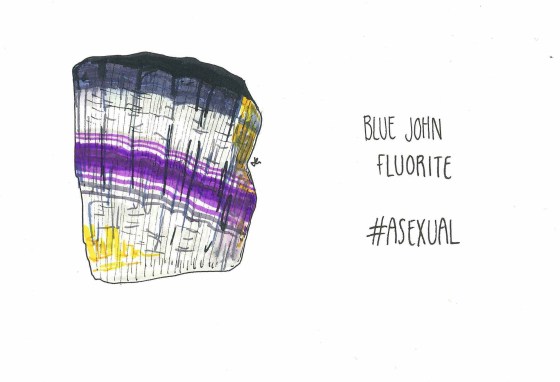 BLUE JOHN
FLUORITE
#ASEXUAL